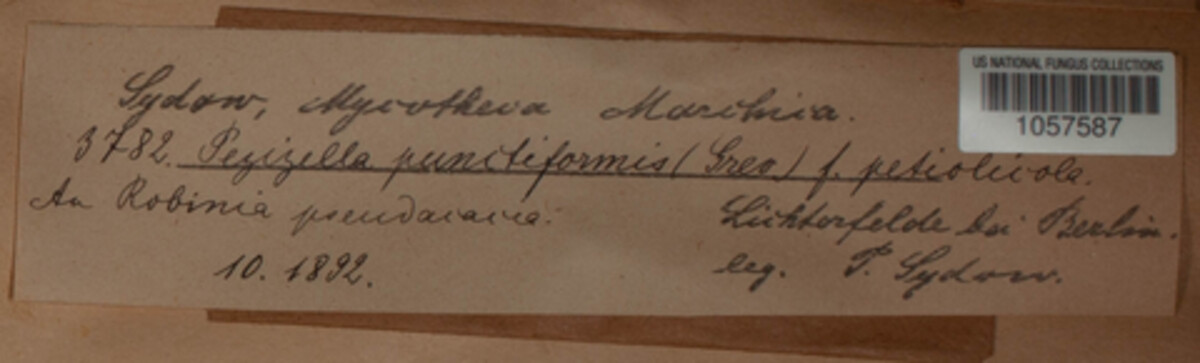 Sydow, Mycotheca Marchica.
US NATIONAL FUNGUS COLLECTIONS
1057587
3782. Pezizella punctiformis (Grev.) f. petiolicola.
An Robinia pseudacacia.
Lichterfelde bei Berlin.
10. 1892.
leg. P. Sydow.